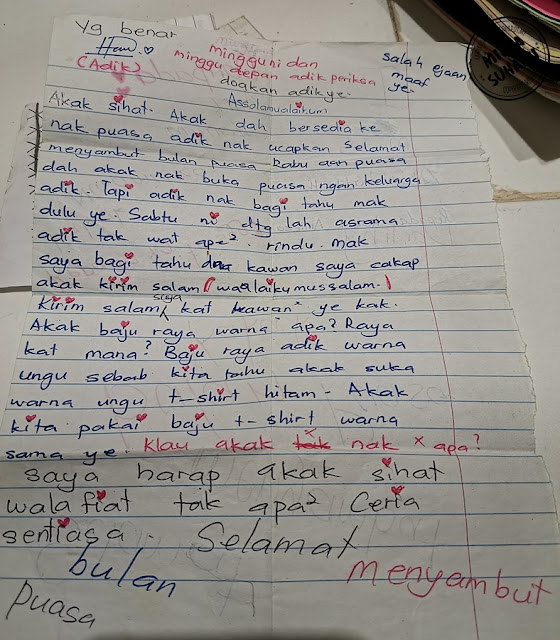 Yg benar
(Adik)
Minggu ni dan
minggu depan adik periksa
doakan adik ye.
salah ejaan
maaf
ye.
Assolamualaikum
Akak sihat. Akak dah bersedia ke
nak puasa adik nak ucapkan selamat
menyambut bulan puasa Rabu dan puasa
dah akak nak buka puasa ngan keluarga
adik. Tapi adik nak bagi tahu mak
dulu ye. Sabtu ni dtg lah asrama
adik tak wat ape². rindu. mak
saya bagi tahu kawan saya cakap
akak kirim salam (waalaikumussalam.)
kirim salam saya kat kawan² ye kak.
Akak baju raya warna apa? Raya
kat mana? Baju raya adik warna
ungu sebab kita tahu akak suka
warna ungu t-shirt hitam - Akak
kita pakai baju t-shirt warna
sama ye. Klau akak tak nak x apa?
saya harap akak sihat
walafiat tak apa² Ceria
sentiasa. Selamat
bulan menyambut
Puasa